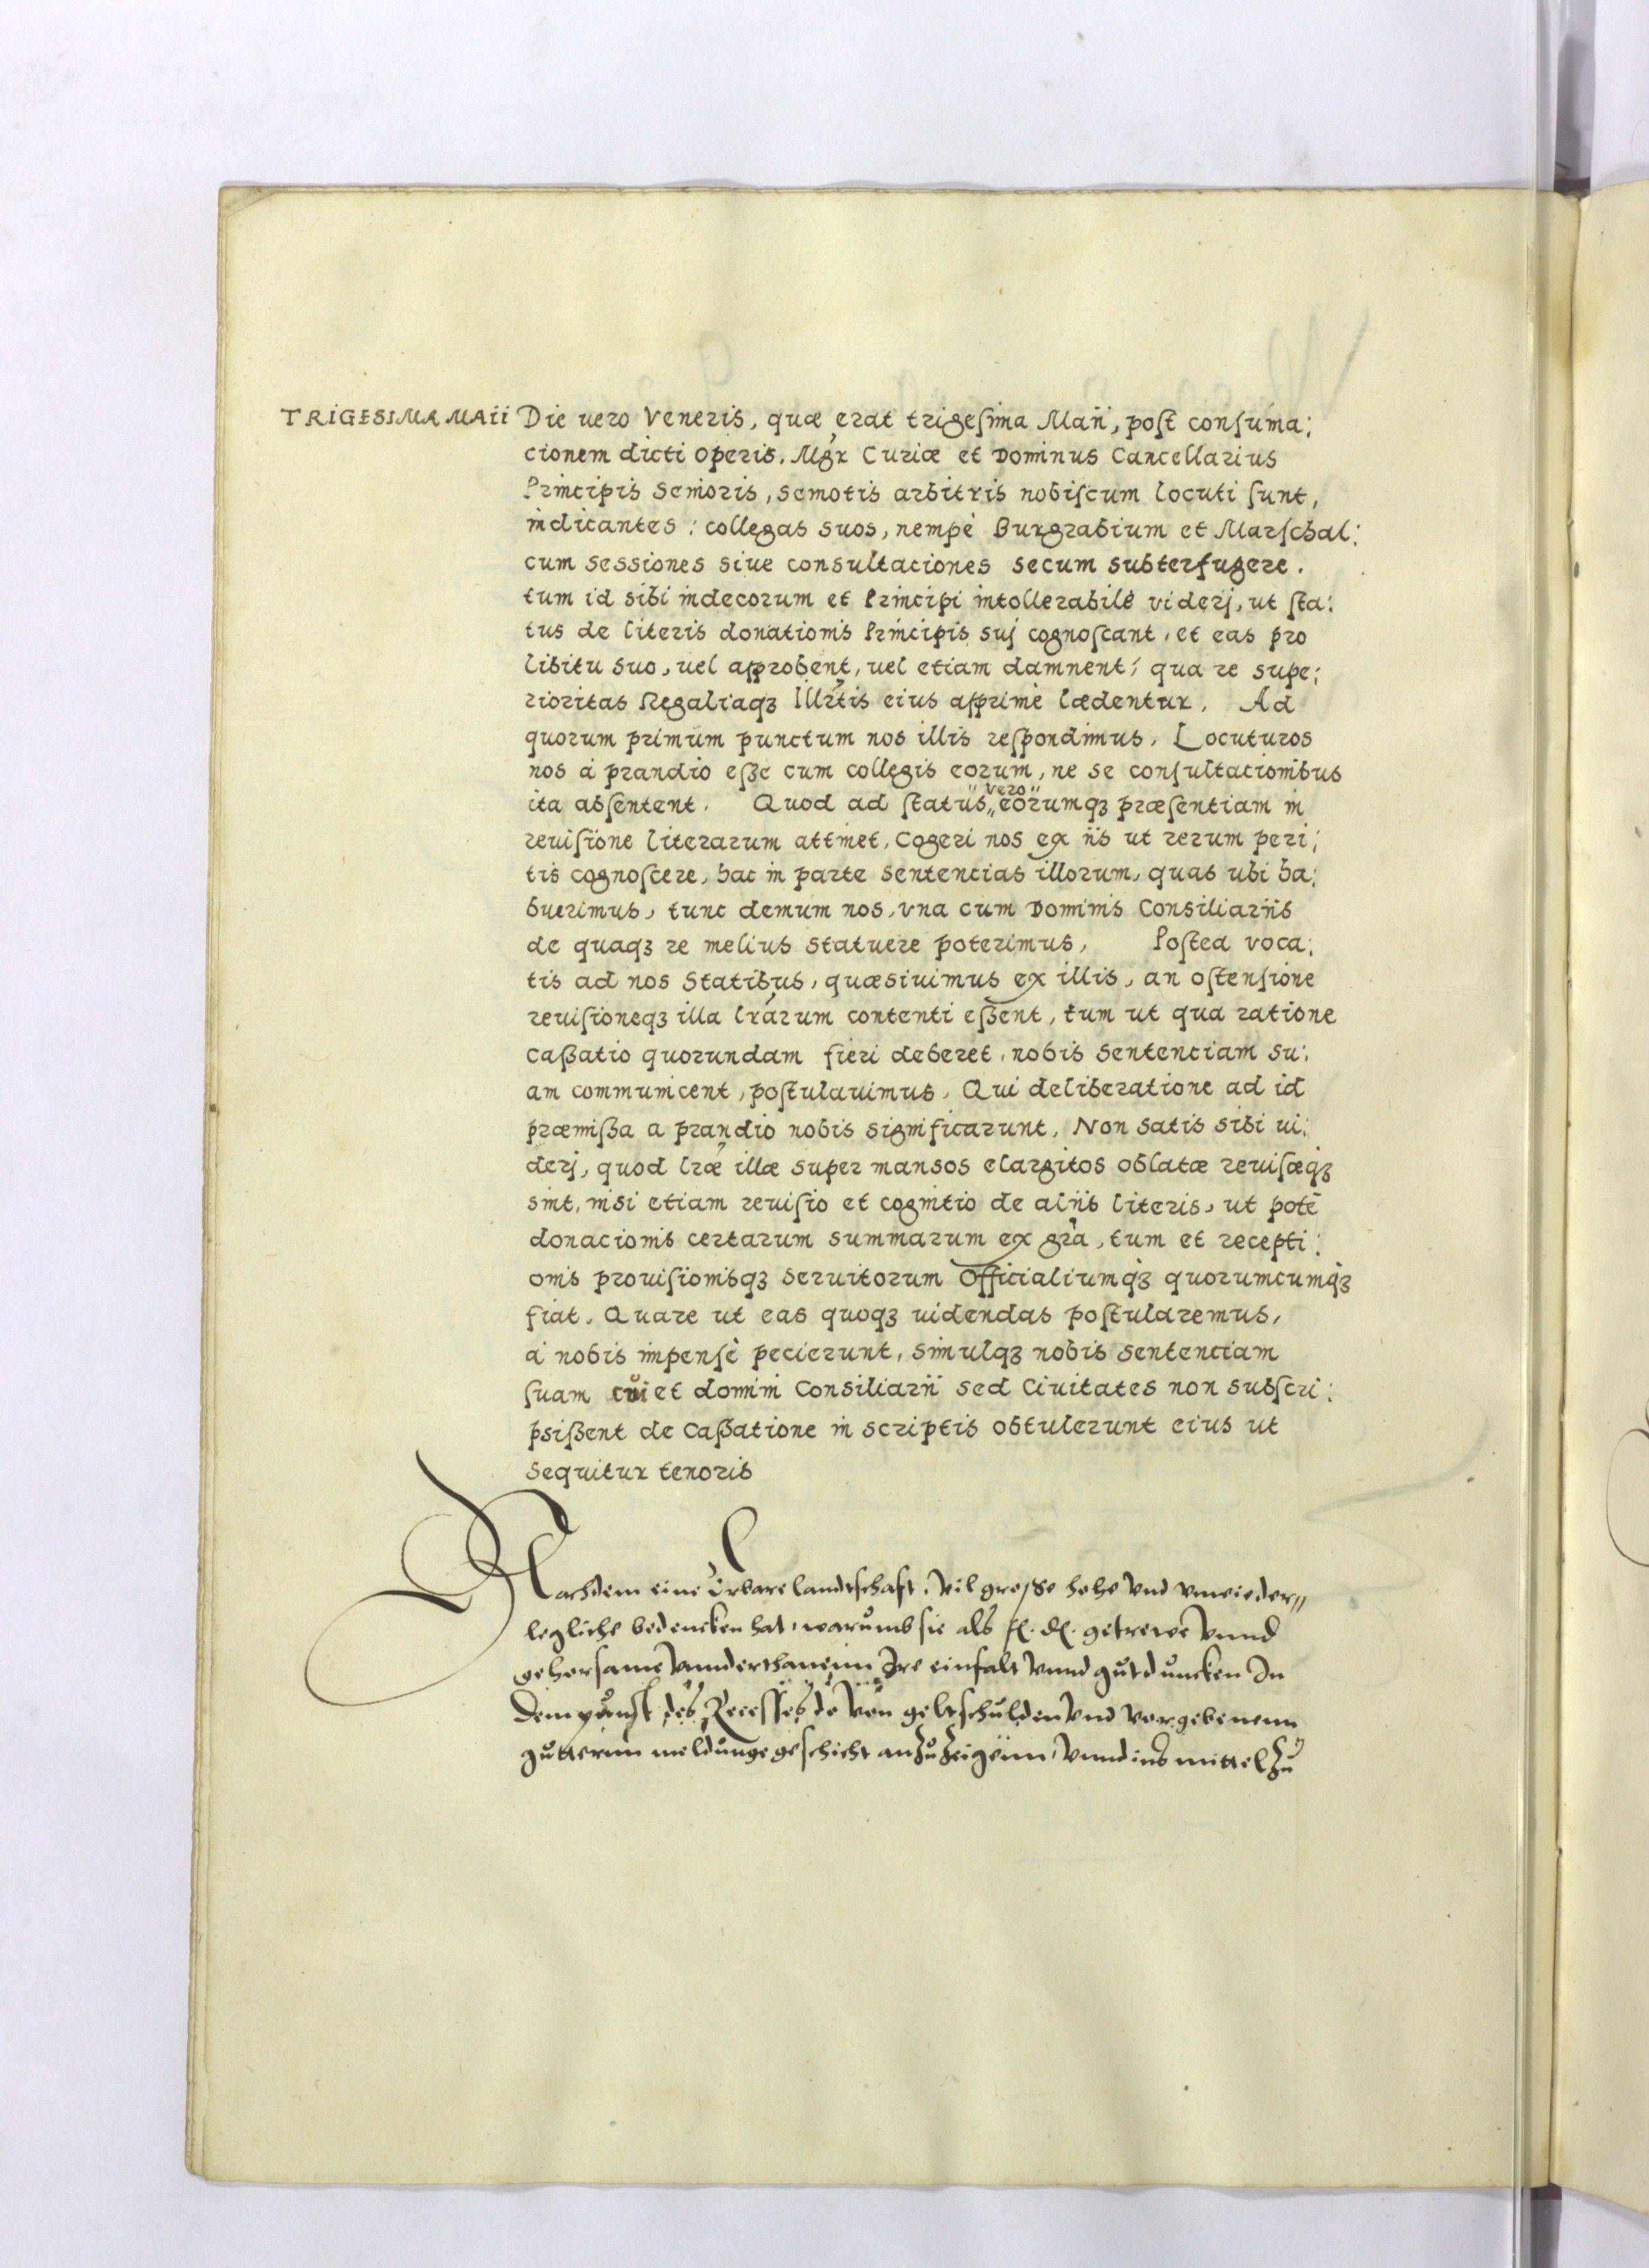 TRIGESIMA MAII Die uero Veneris, quæ erat trigesima Maii, post consuma:
cionem dicti operis, Mgr Curiæ et Dominus Cancellarius
Principis Senioris, semotis arbitris nobiscum locuti sunt,
indicantes: collegas suos, nempè Burgrabium et Marschal:
cum sessiones siue consultaciones secum subterfugere.
tum id sibi indecorum et Principi intollerabilè viderj, ut sta:
tus de literis donationis Principis suj cognoscant, et eas pro
libitu suo, uel approbent, uel etiam damnent, qua re supe:
rioritas Regaliaqȝ Illrtis eius apprimè lædentur. Ad
quorum primum punctum nos illis respondimus, Locuturos
nos à prandio eße cum collegis eorum, ne se consultacionibus
ita absentent. Quod ad status vero eorumqȝ præsentiam in
reuisione literarum attinet, Cogeri nos ex iis ut rerum peri:
tis cognoscere, hac in parte sentencias illorum, quas ubi ha:
buerimus, tunc demum nos, vna cum Dominis Consiliariis
de quaqȝ re melius statuere poterimus, Postea voca:
tis ad nos Statibus, quæsiuimus ex illis, an ostensione
reuisioneqȝ illa lrarum contenti eßent, tum ut qua ratione
caßatio quorundam fieri deberet, nobis sentenciam su:
am communicent, postulauimus, Qui deliberatione ad id
præmißa a prandio nobis significarunt, Non satis sibi ui:
derj, quod lræ illæ super mansos elargitos oblatæ reuisæqȝ
sint, nisi etiam reuisio et cognitio de aliis literis, ut potè
donacionis certarum summarum ex gra, tum et recepti:
onis prouisionisqȝ seruitorum Officialiumqȝ quorumcumqȝ
fiat, Quare ut eas quoqȝ uidendas postularemus,
à nobis impensè pecierunt, simulqȝ nobis sentenciam
suam cui et domini Consiliarii sed Ciuitates non subscri:
psißent de Caßatione in scriptis obtulerunt eius ut
sequitur tenoris
Nachdem eine Erbare landtschafft, vil große hohe vnd vnwieder„
legliche bedencken hat, warumb sie als f. d. getrewe Vnnd
gehorsame Vnnderthanenn Ire einfalt Vnnd gutduncken In
dem punct des Recesses do von geltschulden Vnd vorgebenenn
gutternn meldunge geschicht anzuzeigenn, Vnnd ins mittel zu